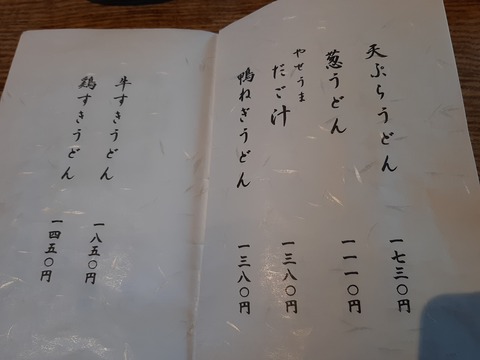 天ぷらうどん
一七三〇円
葱うどん
一一一〇円
やせうま
だご汁
一三八〇円
鴨ねぎうどん
一三八〇円
牛すきうどん
一八五〇円
鶏すきうどん
一四五〇円